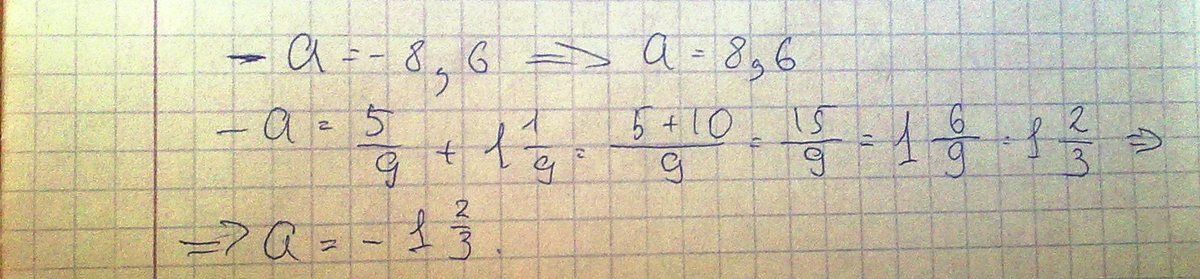 - a = - 8,6 => a = 8,6
- a = 5/9 + 1 1/9 = (5+10)/9 = 15/9 = 1 6/9 = 1 2/3 =>
=> a = - 1 2/3.